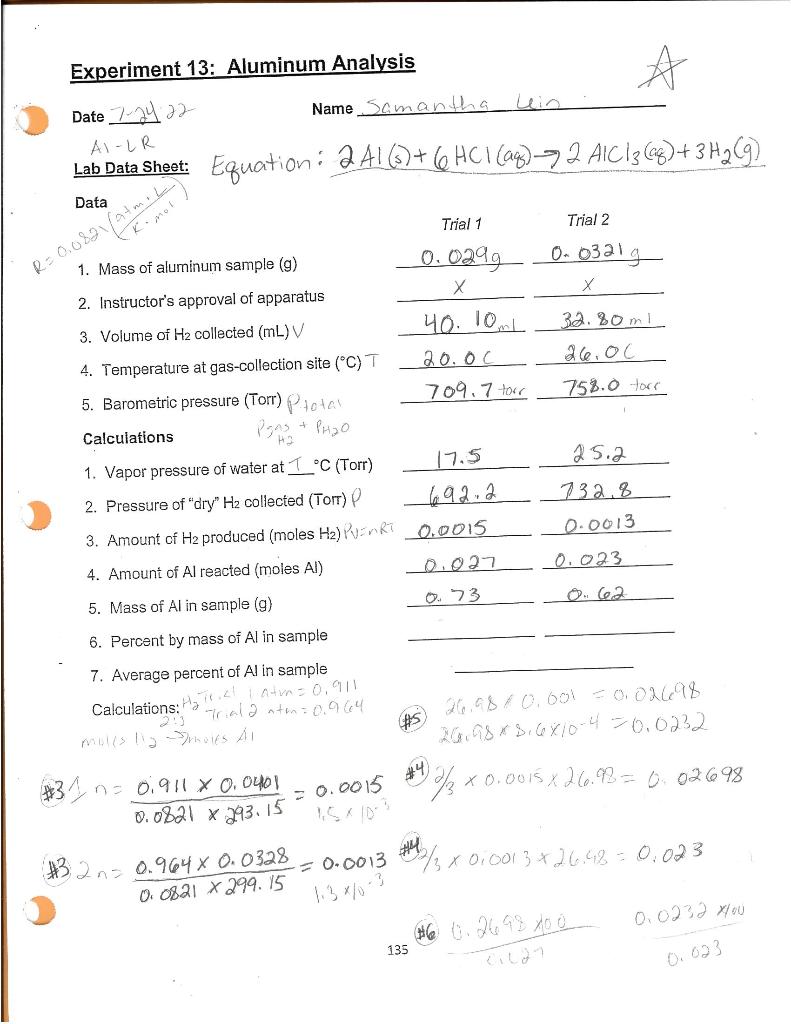 Experiment 13: Aluminum Analysis
Date 7-24-22 Name Samantha
Al-LR
Lab Data Sheet: Equation: 2Al(s) + 6HCl(aq) → 2AlCl3(aq) + 3H2(g)
Data
R=0.0821 (atm·L / K·mol)
Trial 1 Trial 2
1. Mass of aluminum sample (g) 0.029g 0.0321g
2. Instructor's approval of apparatus X X
3. Volume of H2 collected (mL) V 40.10ml 32.80ml
4. Temperature at gas-collection site (°C) T 20.0C 26.0C
5. Barometric pressure (Torr) Ptotal 709.7 torr 758.0 torr
Pgas H2 + PH2O
Calculations
1. Vapor pressure of water at T °C (Torr) 17.5 25.2
2. Pressure of "dry" H2 collected (Torr) P 692.2 732.8
3. Amount of H2 produced (moles H2) PV=nRT 0.0015 0.0013
4. Amount of Al reacted (moles Al) 0.027 0.023
5. Mass of Al in sample (g) 0.73 0.62
6. Percent by mass of Al in sample
7. Average percent of Al in sample
H2 Trial 1 atm = 0.911
Calculations: Trial 2 atm = 0.964
moles H2 → moles Al
#5 26.98 x 0.001 = 0.02698
26.98 x 8.6x10-4 = 0.0232
#3 1 n = 0.911 x 0.0401 / 0.0821 x 293.15 = 0.0015
1.5 x 10-3
#4 2/3 x 0.0015 x 26.98 = 0.02698
#3 2 n = 0.964 x 0.0328 / 0.0821 x 299.15 = 0.0013
1.3 x 10-3
#4 2/3 x 0.0013 x 26.98 = 0.023
#6 0.2698 x100
0.0232 x100 / 0.023
135